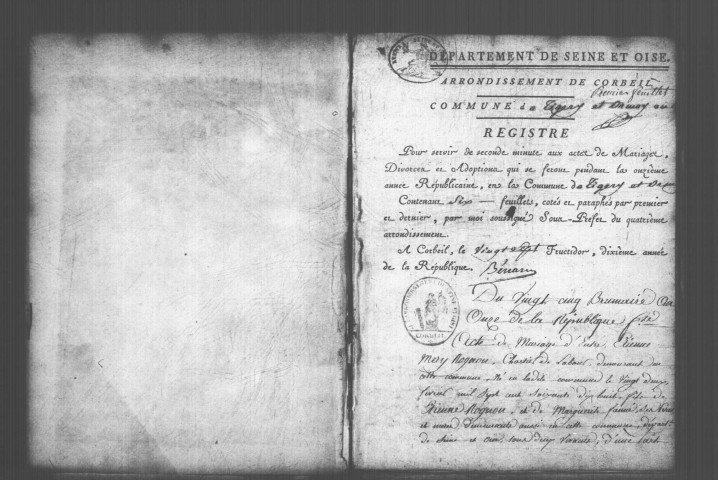 DÉPARTEMENT DE SEINE ET OISE.
ARRONDISSEMENT DE CORBEIL
Premier feuillet
COMMUNE de Tigery et
REGISTRE
Pour servir de seconde minute aux actes de Mariages,
Divorces et Adoptions qui se feront pendant la onzième
année Républicaine, en la Commune de Tigery et
Contenant Six feuillets, cotés et paraphés par premier
et dernier, par moi soussigné Sous-Préfet du quatrième
arrondissement.
A Corbeil, le Vingt Sept Fructidor, dixième année
de la République.
CORBEIL
Du Vingt cinq Brumaire an
Onze de la République
Acte de Mariage d'Entre Etienne
Mery Rognon, Chartier de Labour, demeurant en
cette commune, Né en ladite commune le Vingt deux
mil Sept cent soixante dix huit, fils de
Etienne Rognon, et de Marguerite
et mere Demeurants aussi en cette commune, départ.t
de Seine et Oise, tous deux d'une part